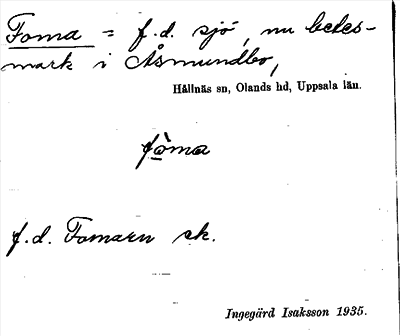 Foma = f.d. sjö, nu betes-
mark i Åsmundbo,
Hållnäs sn, Olands hd, Uppsala län.
fòma
f.d. Fomaren sk.
Ingegärd Isaksson 1935.